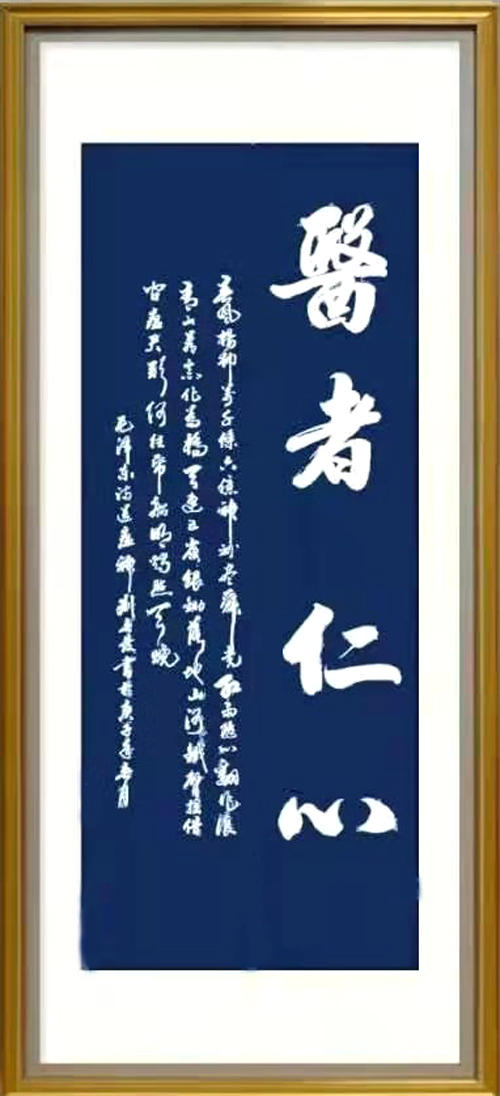 醫者仁心
春風楊柳萬千條六億神州盡舜堯紅雨隨心翻作浪
青山著意化為橋天連五嶺銀鋤落地山河鐵臂搖借
問瘟君欲何往紙船明燭照天燒
毛澤東詩送瘟神劉書於庚子年春月